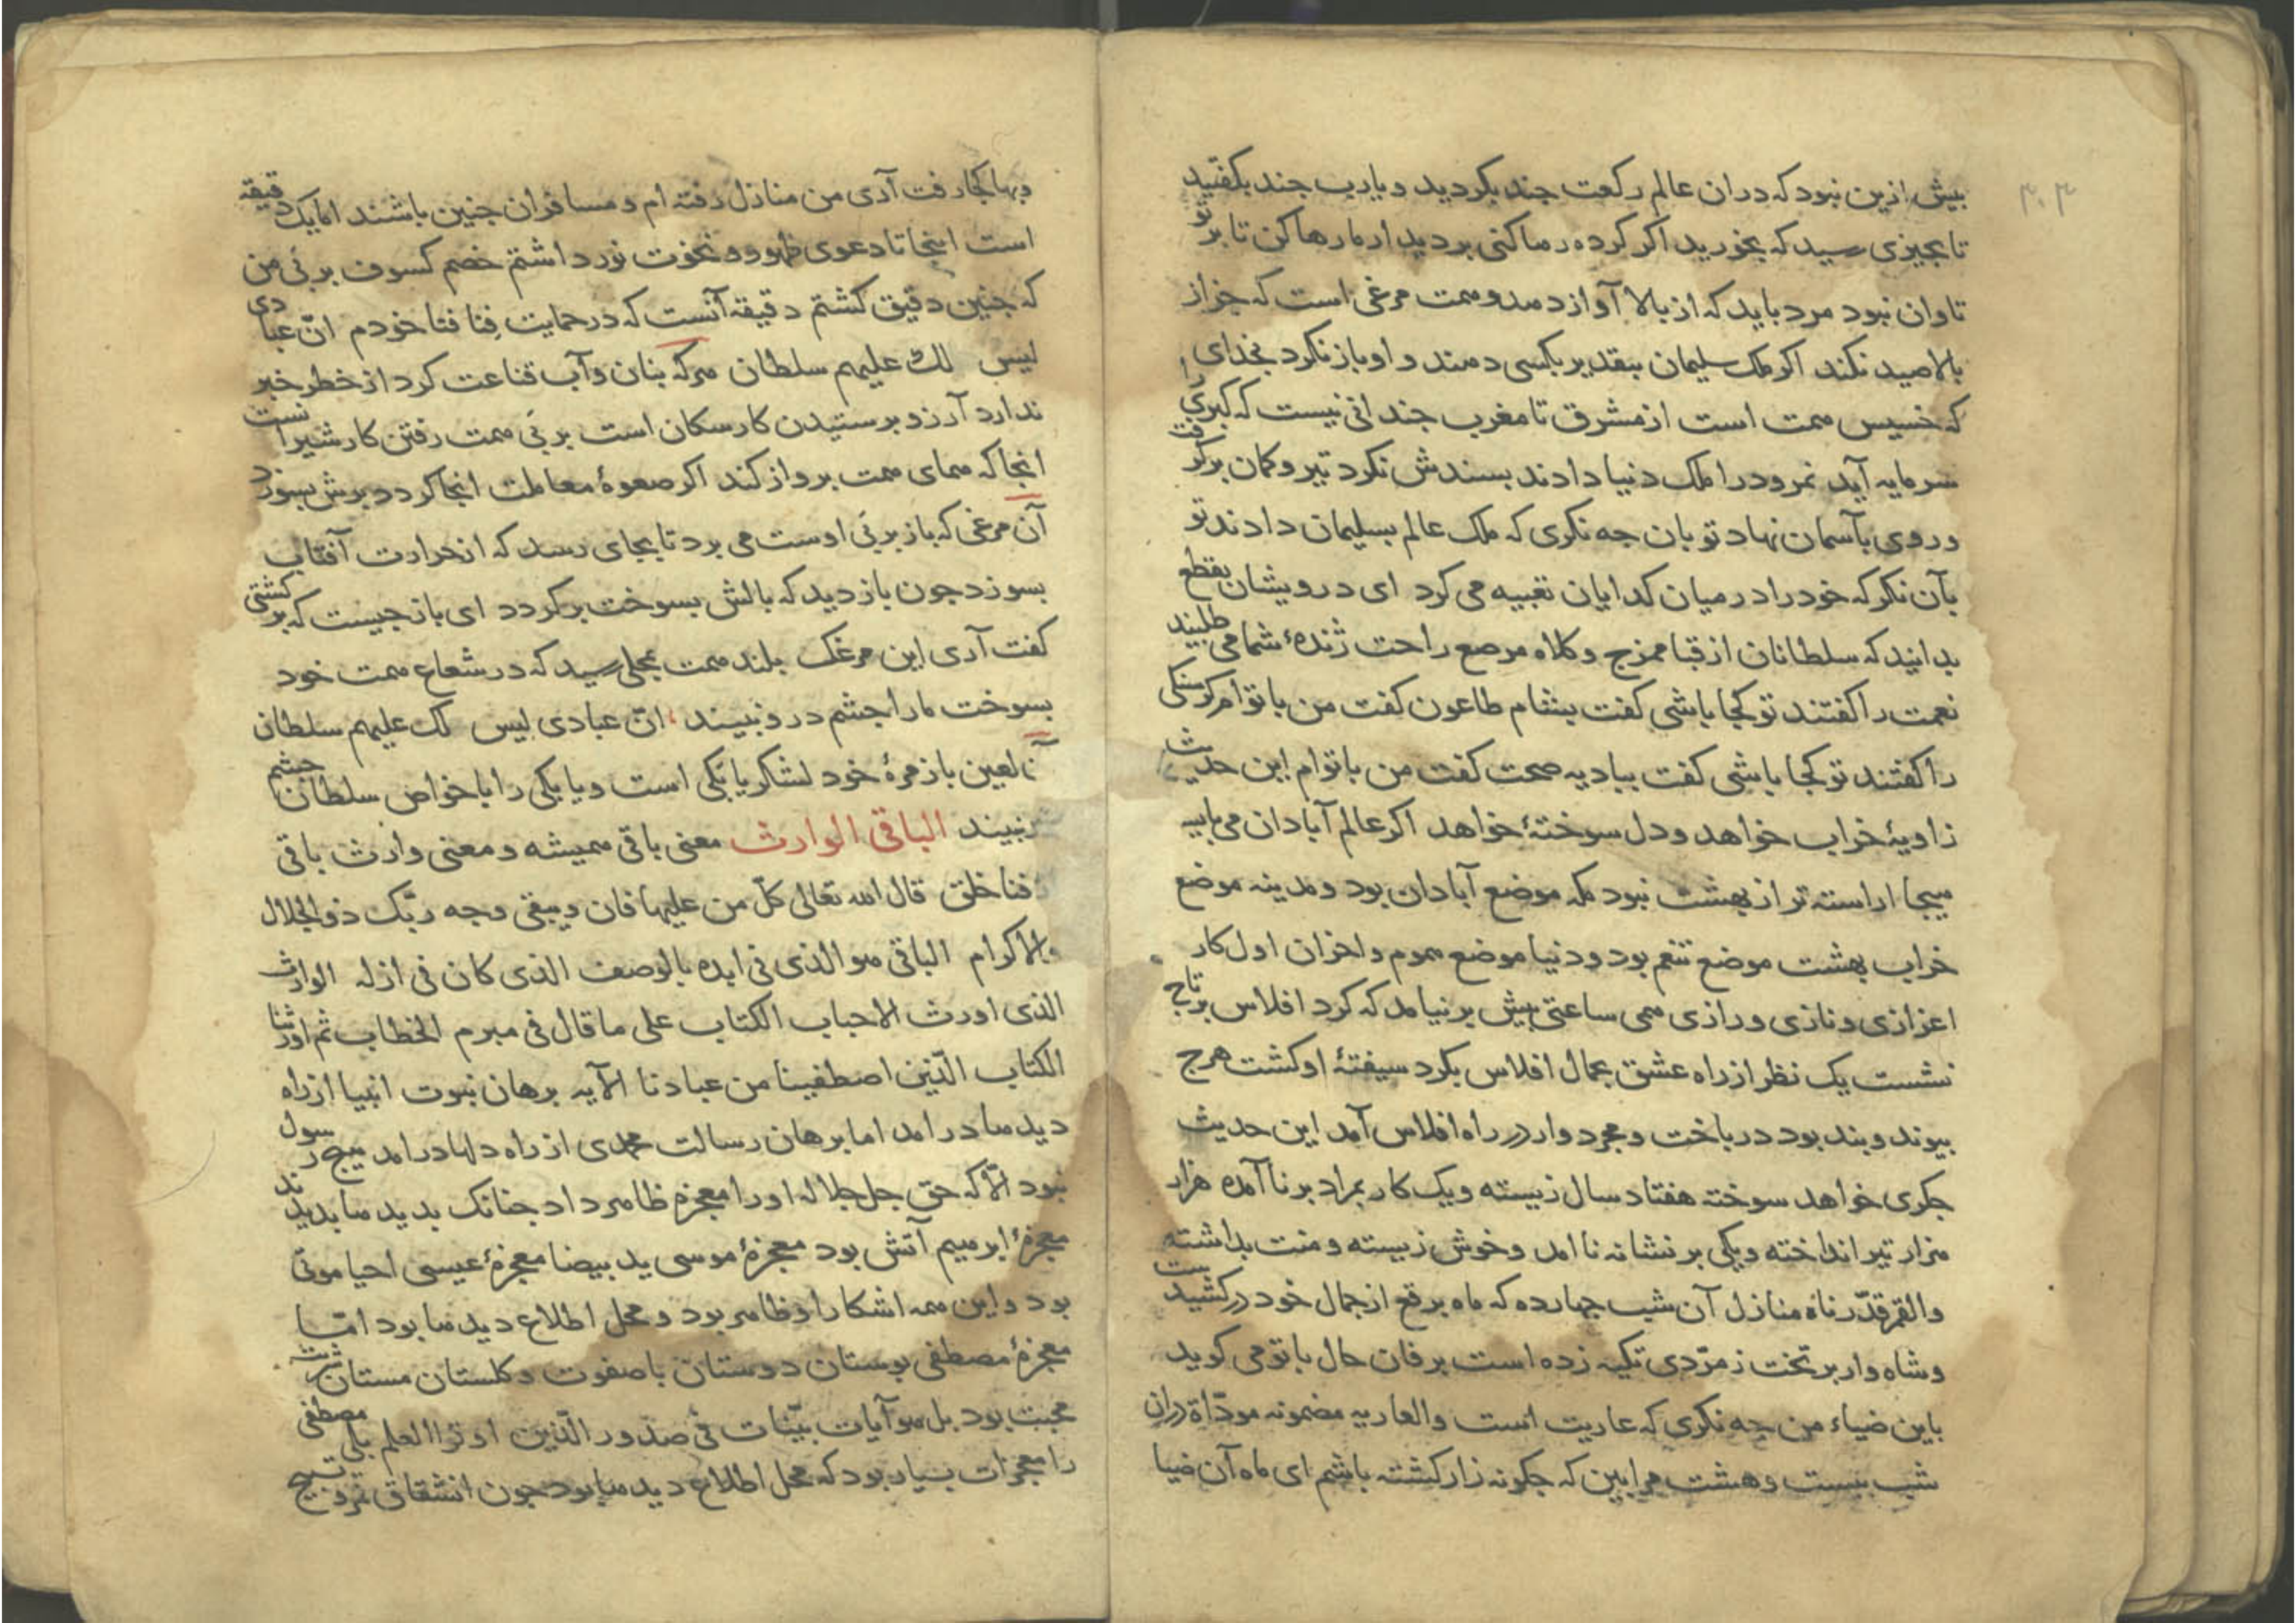 ۳۰۳
بیش ازین نبود که دران عالم رکعت جند بکردید و یارب جند بکفتید
تا بجیزی رسید که بخورید اکر کرده رها کنی بردیدار ما رها کن تا بر تو
تاوان نبود مرد باید که از بالا آواز دهد و همت مرغی است که جز از
بالا صید نکند اکر ملک سلیمان بتقدیر بکسی دهند و او باز نکرد بخدای
که خسیس همت است از مشرق تا مغرب جندانی نیست که کبری را
سرمایه آید نمرود را ملک دنیا دادند بسندش نکرد تیر و کمان برکرفت
و روی بآسمان نهاد تو بان جه نکری که ملک عالم بسلیمان دادند تو
بآن نکر که خود را در میان کدایان تعبیه می کرد ای درویشان بقطع
بدانید که سلطانان از قبا ممزج و کلاه مرصع راحت ژندهٔ شما می طلبند
نعمت را کفتند تو کجا باشی کفت بشام طاعون کفت من با توام کرسنکی
را کفتند تو کجا باشی کفت ببادیه صحت کفت من با توام این حدیث
زاویهٔ خراب خواهد و دل سوختهٔ خواهد اکر عالم آبادان می باید
هیجا اراسته تر از بهشت نبود مکه موضع آبادان بود و مدینه موضع
خراب بهشت موضع تنعم بود و دنیا موضع هموم و احزان اول کار
اعزازی و نازی و رازی همی ساعتی بیش برنیامد که کرد افلاس بر تاج
نشست یک نظر از راه عشق بجمال افلاس بکرد سیفتهٔ او کشت هرج
بیوند و بند بود درباخت و مجرد وار در راه افلاس آمد این حدیث
جکری خواهد سوخته هفتاد سال زیسته و یک کار بمراد برنا آمده هزار
هزار تیر انداخته و یکی بر نشانه نا امد و خوش زیسته و منت بداشته
والقمر قدّرناه منازل آن شب جهارده که ماه برقع از جمال خود درکشید
و شاه وار بر تخت زمرّدی تکیه زده است برفان حال با تو می کوید
باین ضیاء من جه نکری که عاریت است والعاریه مضمونه مودّاة دران
شب بیست و هشت مرا بین که جکونه زار کشته باشم ای ماه آن ضیا
و بها کجا رفت آری من منازل رفته ام و مسافران جنین باشند اما یک دقیقه
است اینجا تا دعوی ظهور و نخوت نور داشتم خصم کسوف بر بئ من
که جنین دقیق کشتم دقیقه آنست که در حمایت فنا فتا خودم انّ عبادی
لیس لک علیهم سلطان هرکه بنان و آب قناعت کرد از خطر خبر
ندارد آرزو برستیدن کار سکان است بر بَی همت رفتن کار شیرانست
انجا که همای همت برواز کند اکر صعوهٔ معاملت انجا کردد برش بسوزد
آن مرغی که باز بر بَی اوست می برد تا بجای رسد که از حرارت آفتاب
بسوزد جون باز دید که بالش بسوخت برکردد ای باز جیست که برکشتی
کفت آری این مرغک بلند همت بمحلی رسید که در شعاع همت خود
بسوخت ما را جشم درو نبیند انّ عبادی لیس لک علیهم سلطان
لعین باز مرهٔ خود لشکر یا بکی است و یا یکی را با خواص سلطان جشم
نبیند الباقی الوارث معنی باقی همیشه و معنی وارث باقی
فنا خلق قال الله تعالی کلّ من علیها فان و یبقی وجه ربّک ذو الجلال
والاکرام الباقی هو الذی فی ابده بالوصف الذی کان فی ازله الوارث
الذی اورث الاحباب الکتاب علی ما قال فی مبرم الخطاب ثم اورثنا
الکتاب الّذین اصطفینا من عبادنا الآیه برهان نبوت انبیا از راه
دیدها درامد اما برهان رسالت محمدی از راه دلها درامد هیج رسول
نبود الّا که حق جل جلاله او را معجزه ظاهر داد جنانک بدیدها بدیدند
معجزهٔ ابرهیم آتش بود معجزهٔ موسی ید بیضا معجزهٔ عیسی احیا موتی
بود و این همه اشکارا و ظاهر بود و محل اطلاع دیدها بود امّا
معجزهٔ مصطفی بوستان دوستان با صفوت و کلستان مستان شربت
محبت بود بل هو آیات بیّنات فی صدور الّذین اوتوا العلم بلی مصطفی
را معجزات بسیار بود که محل اطلاع دیدها بود جون انشقاق قمر و تسبیح